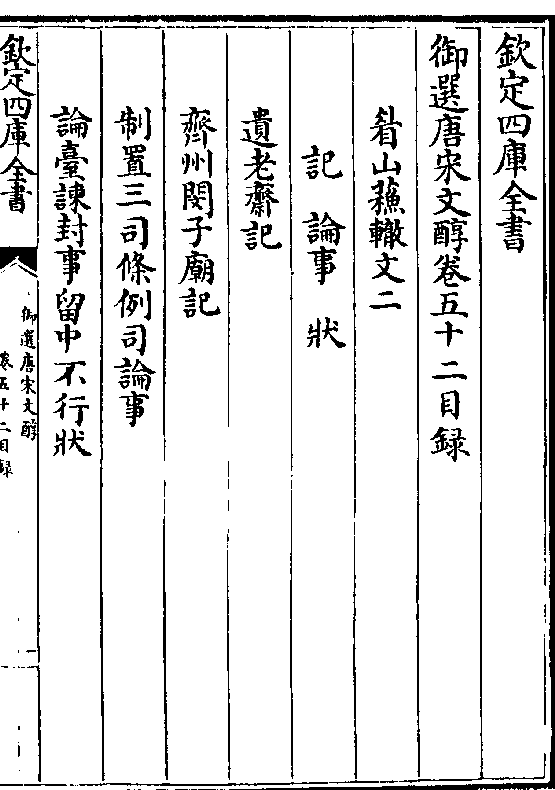 欽定四庫全書
御選唐宋文醇卷五十二目録
眉山蘓轍文二
記 論事 狀
遺老齋記
齊州閔子廟記
制置三司條例司論事
論臺諫封事留中不行狀
欽定四庫全書
御選唐宋文醇
卷五十二目録